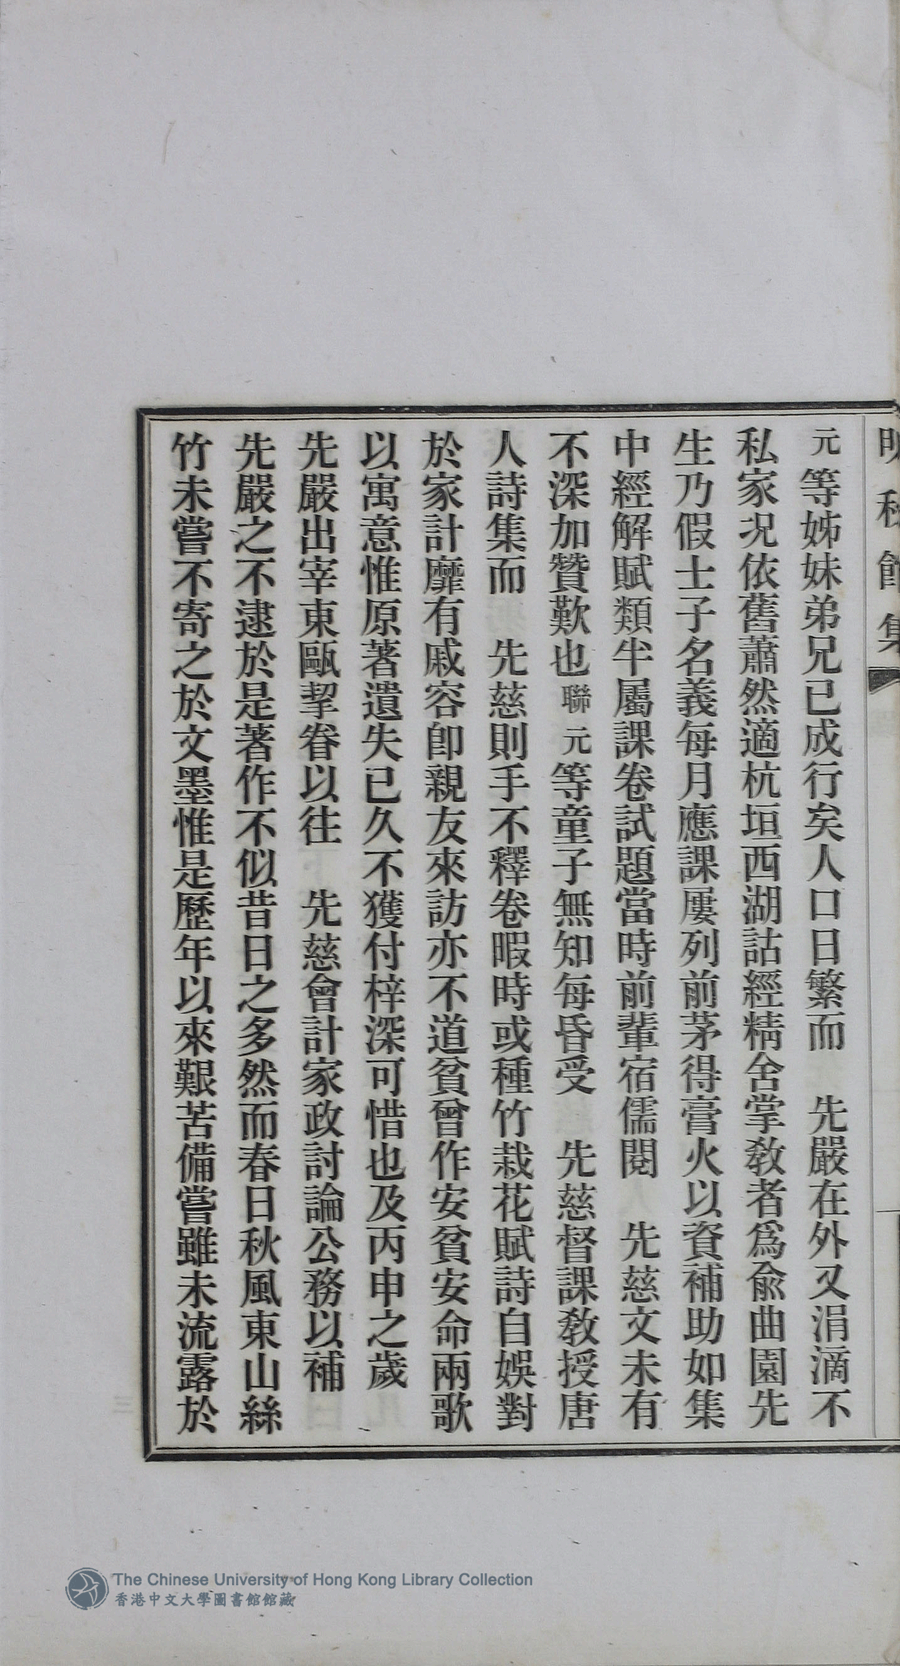 元等姊妹弟兄已成行矣人口日繁而　先嚴在外又涓滴不
私家况依舊蕭然適杭垣西湖詁經精舍掌教者爲俞曲園先
生乃假士子名義每月應課屢列前茅得膏火以資補助如集
中經解賦類半屬課卷試題當時前輩宿儒閱　先慈文未有
不深加贊歎也聯元等童子無知每昏受　先慈督課教授唐
人詩集而　先慈則手不釋卷暇時或種竹栽花賦詩自娛對
於家計靡有戚容卽親友來訪亦不道貧曾作安貧安命兩歌
以寓意惟原著遺失已久不獲付梓深可惜也及丙申之歲
先嚴出宰東甌挈眷以往　先慈會計家政討論公務以補
先嚴之不逮於是著作不似昔日之多然而春日秋風東山絲
竹未嘗不寄之於文墨惟是歷年以來艱苦備嘗雖未流露於
The Chinese University of Hong Kong Library Collection
香港中文大學圖書館館藏